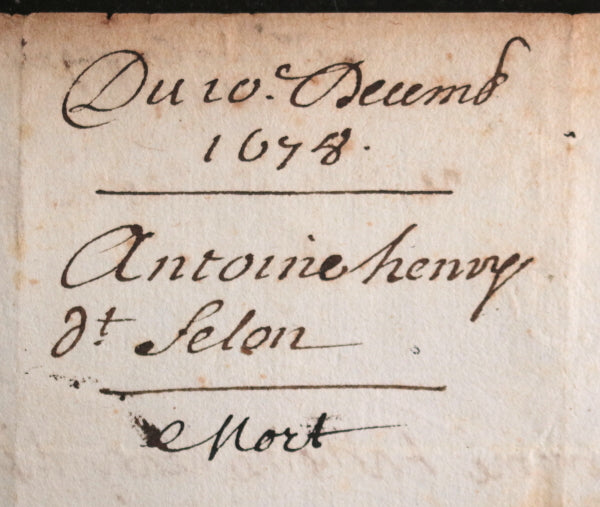 Du 10e. Decemb
1678.
Antoine henry
dt Selon
Mort